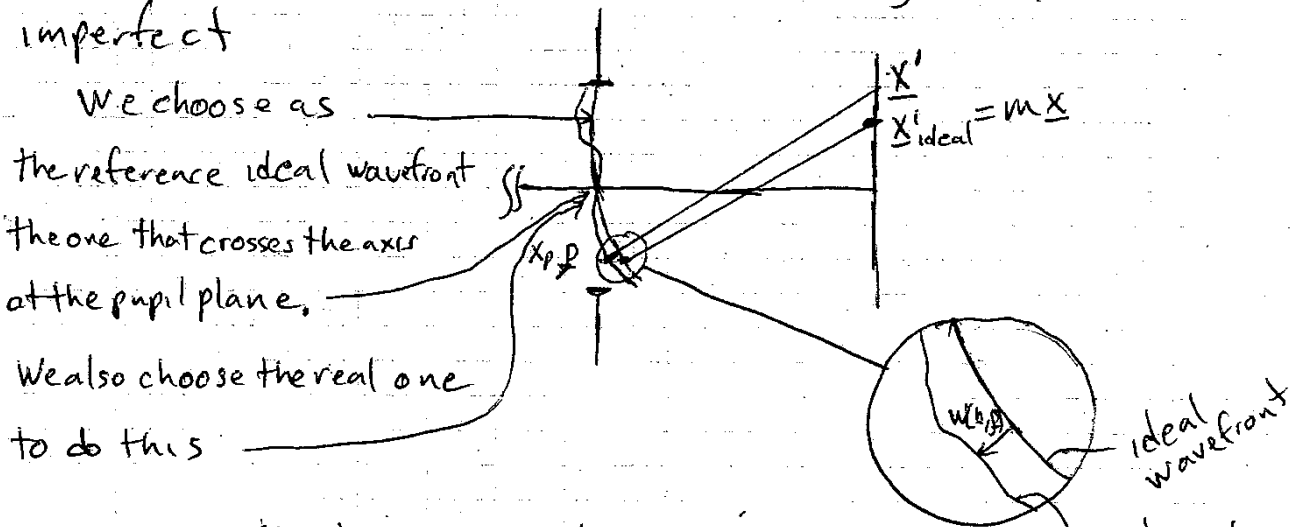 imperfect
We choose as
the reference ideal wavefront
the one that crosses the axis
at the pupil plane.
We also choose the real one
to do this
x'
x'ideal = mx
xp
ideal
wavefront